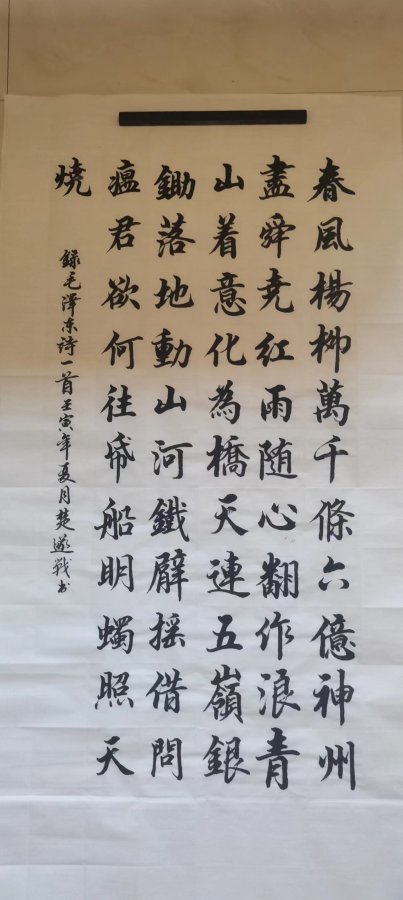 春風楊柳萬千條六億神州
盡舜尭紅雨随心翻作浪青
山着意化為橋天連五嶺銀
鋤落地動山河鐵臂摇借問
瘟君欲何往帋船明蠋照天
燒
録毛澤東詩一首壬寅年夏月楚遂戰书